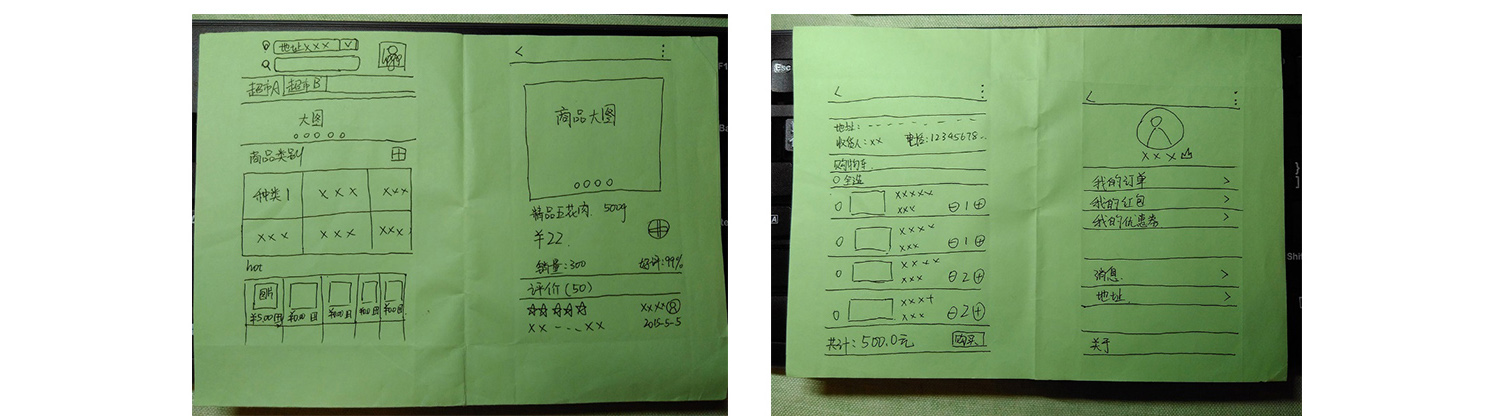 地址xxx
超市A 超市B
大图
商品类别
种类1 xxx xxx
xxx xxx xxx
hot
图片
¥5.00
商品大图
精品五花肉 500g
¥22.
销量:300 好评:99%
评价(50)
xxxx
xx--..xx 2015-5-5
地址:
收货人:xx 电话:12345678..
购物车
全选
xxxxx
xxx 1
xxxx
xxx 1
xxxx
xxx 2
xxx+
xxx 2
共计:500.0元 购买
xxx
我的订单
我的红包
我的优惠券
消息.
地址.
关于
Esc
F1
A
Shi